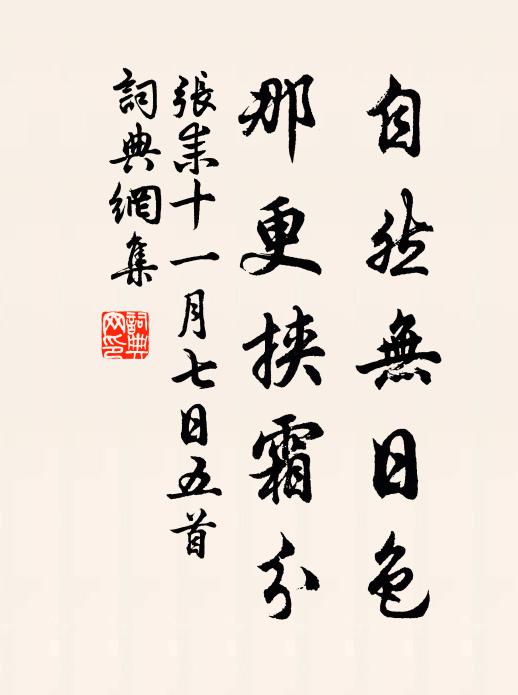 自然無日色
那更挾霜分
張耒十一月七日五首
詞典網集
詞典網印